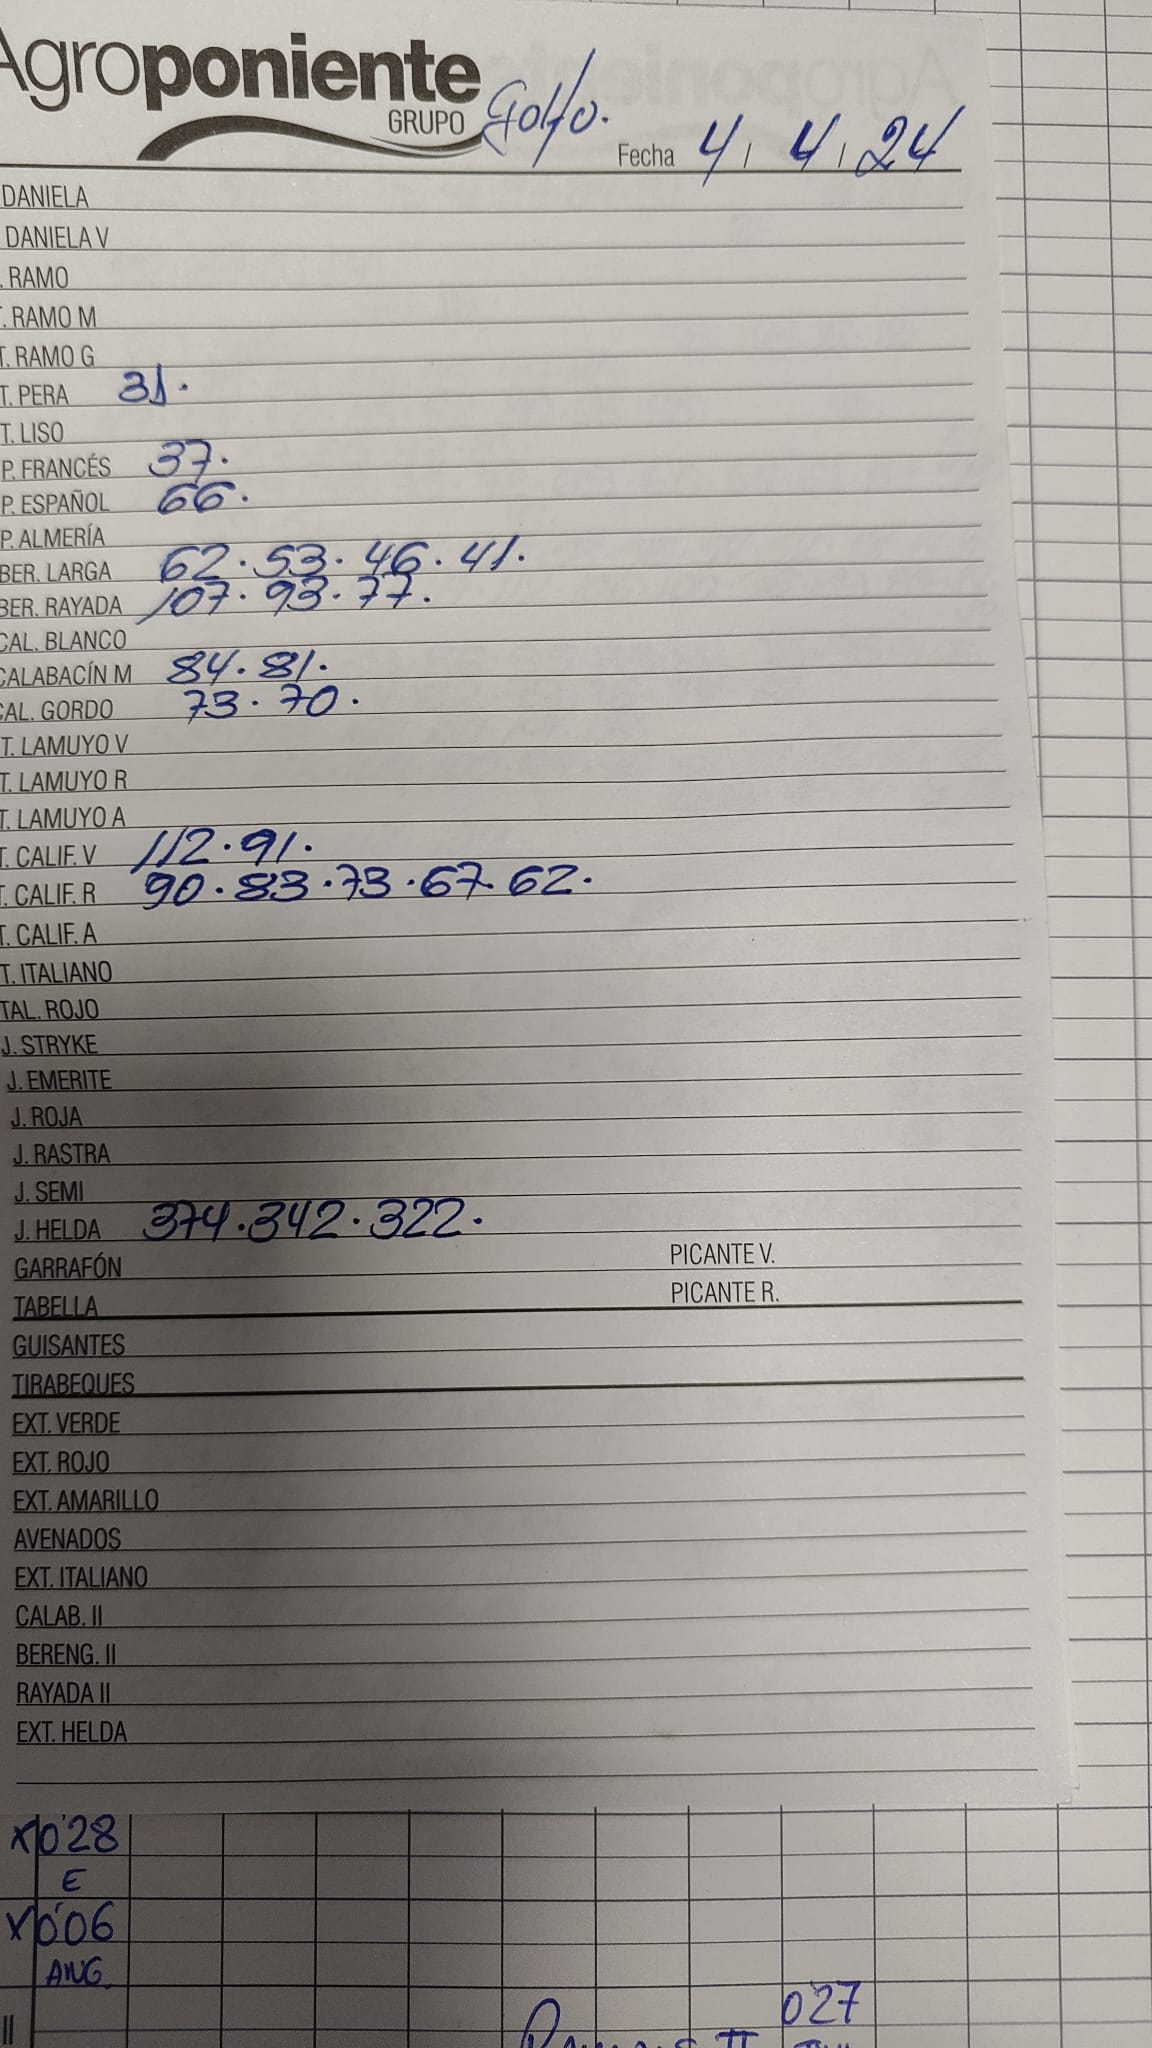 Agroponiente
GRUPO
Golfo.
Fecha 4 / 4 / 24
DANIELA
DANIELA V
. RAMO
T. RAMO M
T. RAMO G
T. PERA 31.
T. LISO
P. FRANCÉS 37.
P. ESPAÑOL 66.
P. ALMERÍA
BER. LARGA 62. 53. 46. 41.
BER. RAYADA 107. 93. 77.
CAL. BLANCO
CALABACÍN M 84. 81.
CAL. GORDO 73. 70.
T. LAMUYO V
T. LAMUYO R
T. LAMUYO A
T. CALIF. V 112. 91.
T. CALIF. R 90. 83. 73. 67. 62.
T. CALIF. A
T. ITALIANO
TAL. ROJO
J. STRYKE
J. EMERITE
J. ROJA
J. RASTRA
J. SEMI
J. HELDA 374. 342. 322.
GARRAFÓN PICANTE V.
TABELLA PICANTE R.
GUISANTES
TIRABEQUES
EXT. VERDE
EXT. ROJO
EXT. AMARILLO
AVENADOS
EXT. ITALIANO
CALAB. II
BERENG. II
RAYADA II
EXT. HELDA
x0'28
E
x0'06
ANG.
027
II